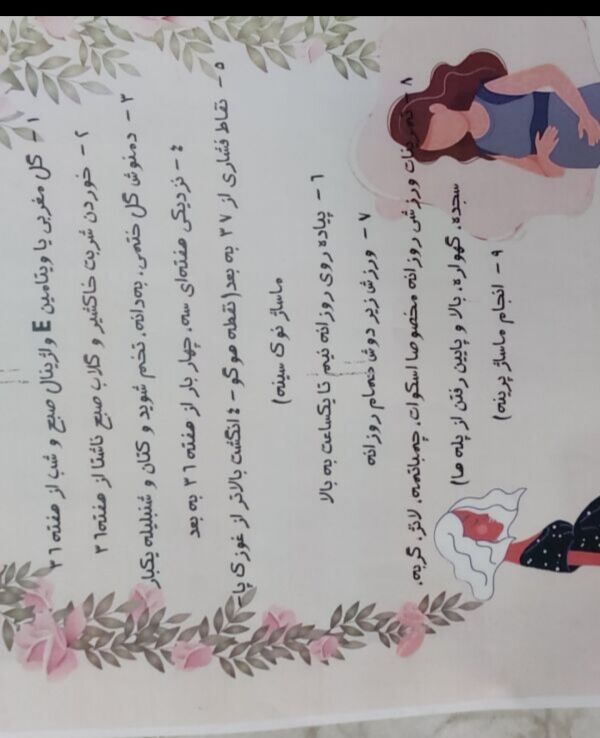 ۱- گل مغربی یا ویتامین E واژینال صبح و شب از هفته ۳۶
۲- خوردن شربت خاکشیر و گلاب صبح ناشتا از هفته ۳۶
۳- دمنوش گل ختمی، به دانه، تخم شوید و کتان و شنبلیله یکبار
۴- نزدیکی هفته‌ای سه، چهار بار از هفته ۳۶ به بعد
۵- نقاط فشاری از ۳۷ به بعد (نقطه هوگو - ۴ انگشت بالاتر از غوزک پا-
ماساژ نوک سینه)
۶- پیاده روی روزانه نیم تا یکساعت به بالا
۷- ورزش زیر دوش حمام روزانه
۸- تمرینات ورزشی روزانه مخصوصا اسکوات، چمباتمه، لانژ، گربه،
سجده، گهواره، بالا و پایین رفتن از پله ها)
۹- انجام ماساژ پرینه)